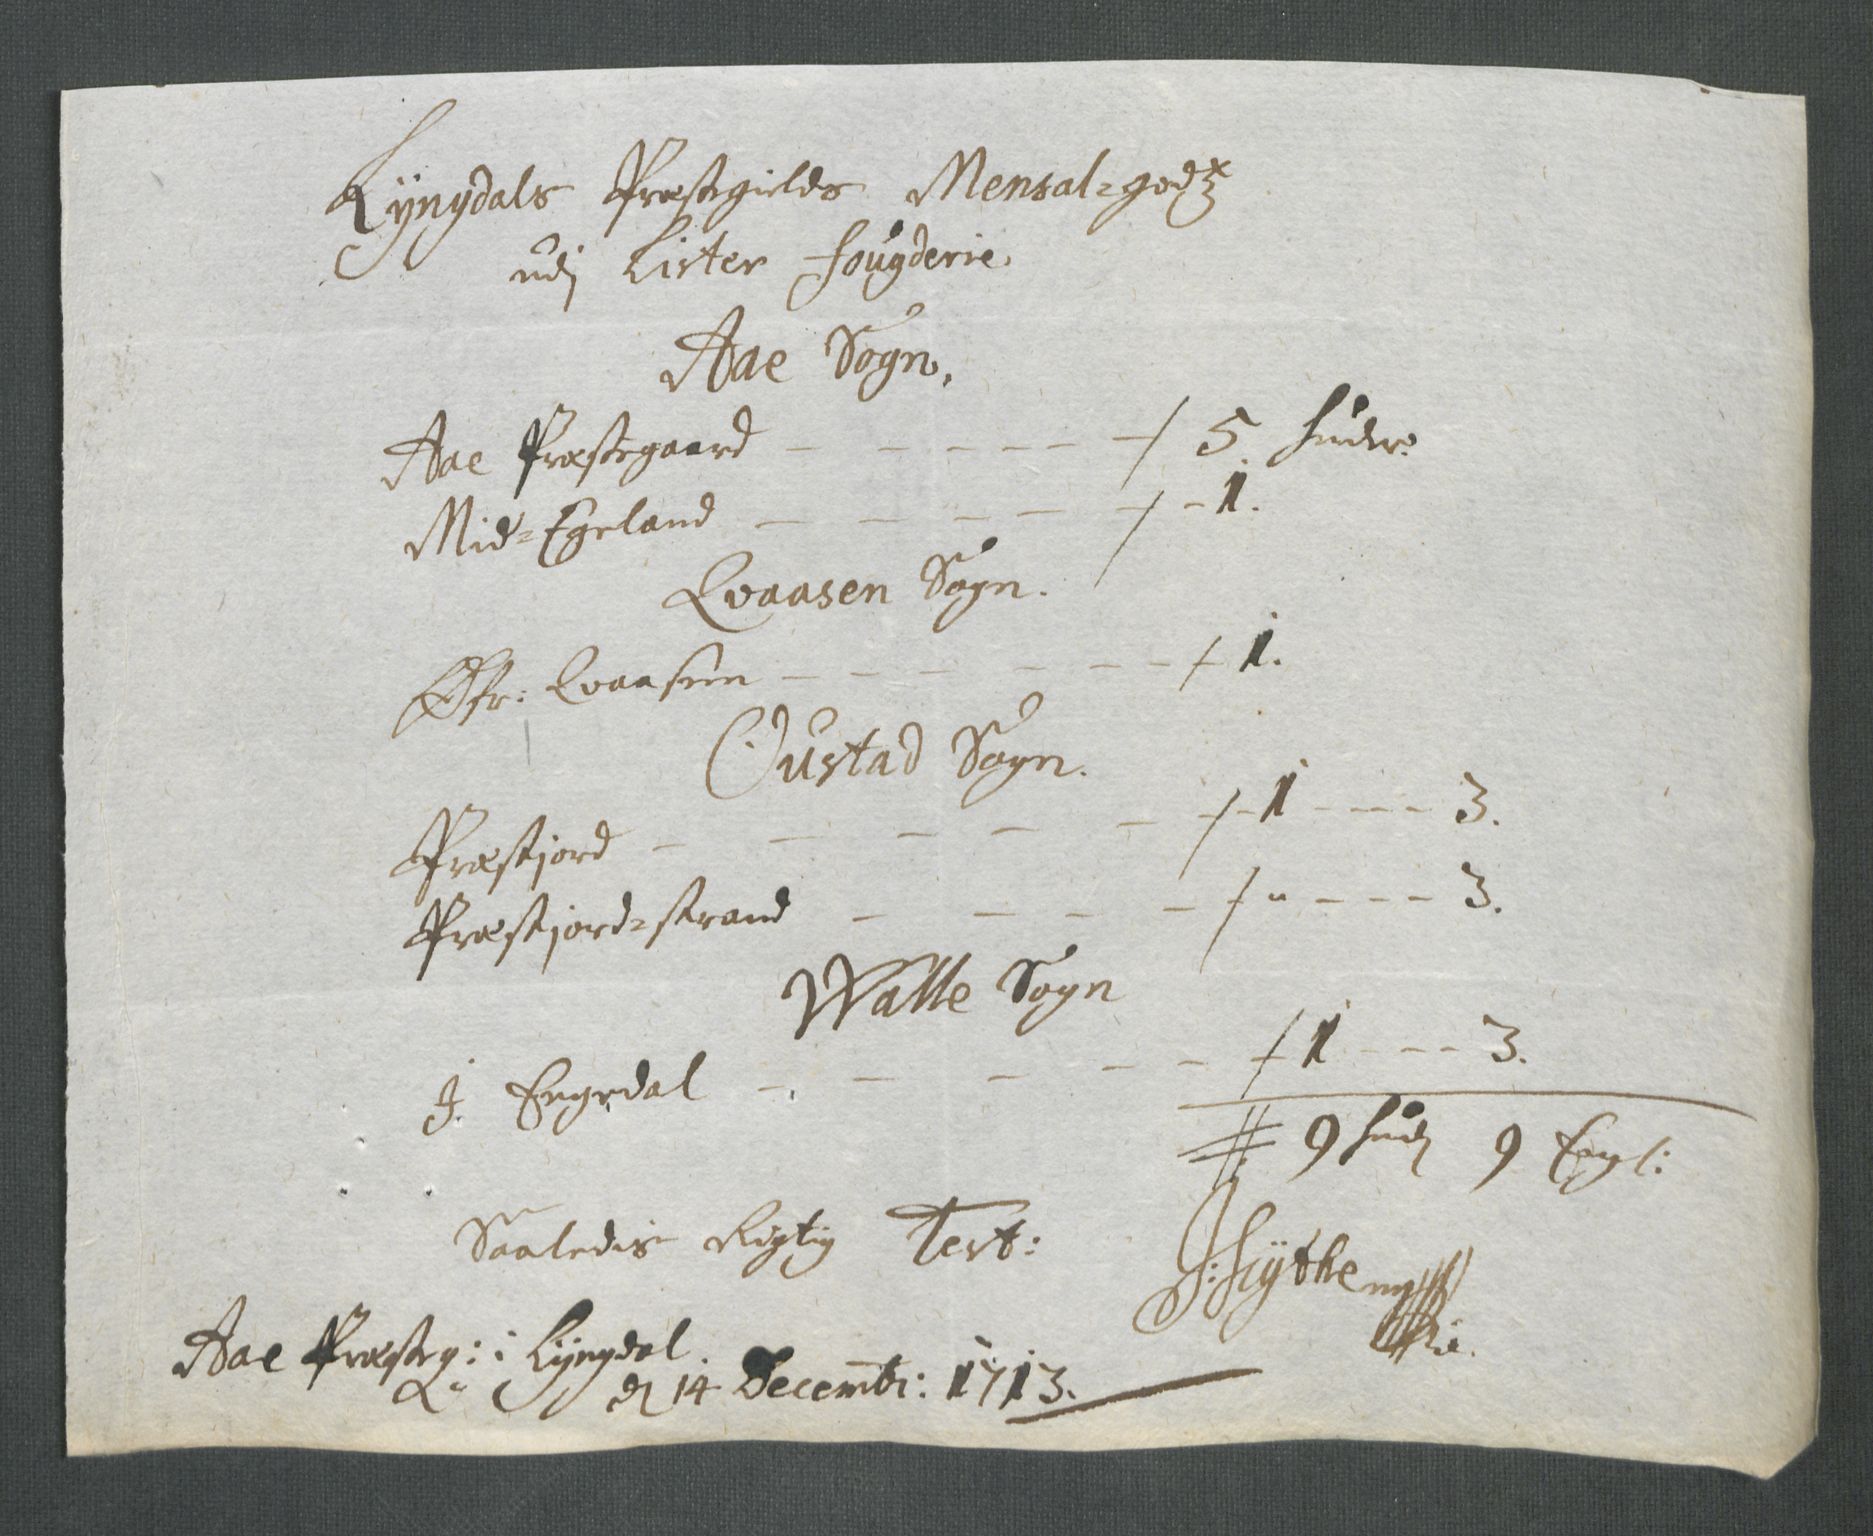 Lÿngdals Præstegields Mensal-godtz
udj Lister fougderie.
Aae Sogn.
Aae Præstegaard - - - - - - 5. huder:
Mid-Egeland - - - - - - 1.
Qvaasen Sogn.
Øfr: Qvaasen - - - - - - 1.
Oustad Sogn.
Præstjord - - - - - - 1 - - - - 3.
Præstjord-strand - - - - - " - - - - 3.
Walle Sogn
J. Engedal - - - - - - 1 - - - 3.
9 hud 9 Engl:
Saaledis Rigtig Test:
Aae Præsteg: i Lÿngdal
d 14 Decembr: 1713.